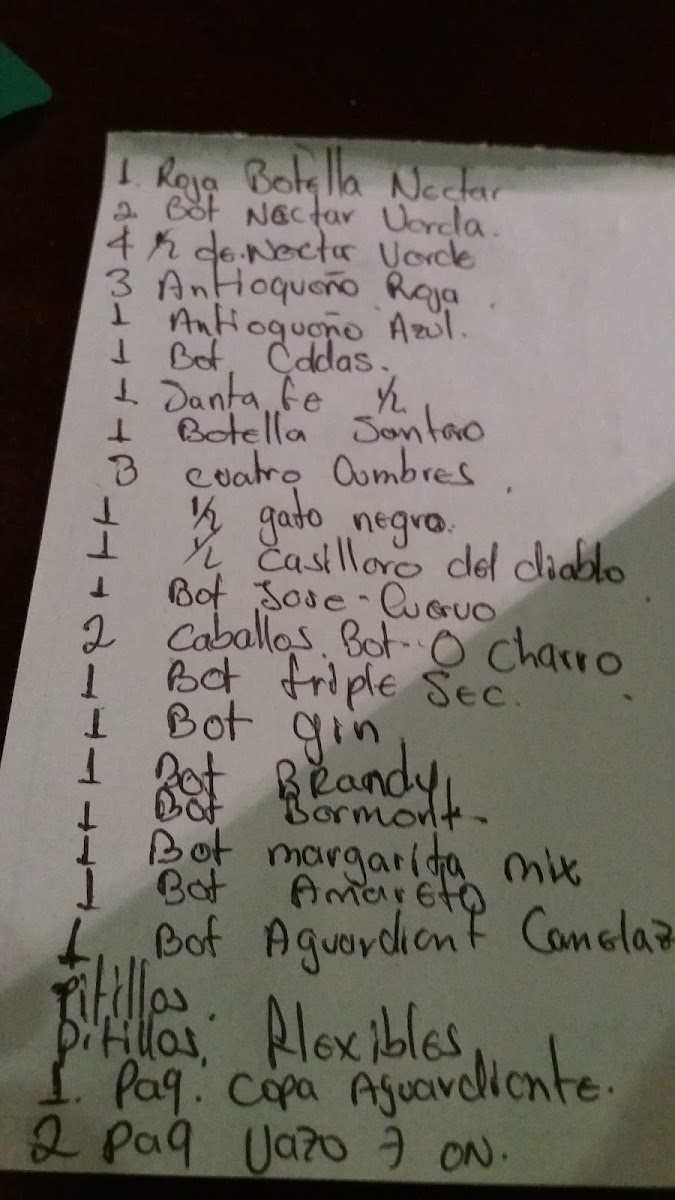 1. Roja Botella Nectar
2 Bot Nectar Verda.
4 ½ de Nectar Verde
3 Antioqueño Roja.
1 Antioqueño Azul.
1 Bot Caldas.
1 Santa fe ½
1 Botella Santao
3 cuatro Cumbres.
1 ½ gato negro.
1 ½ Castllero del diablo
1 Bot Jose-Cuervo
2 Caballos. Bot. O Charro.
1 Bot triple Sec.
1 Bot gin
1 Bot BRandy
1 Bot Bermont.
1 Bot margarita mix
1 Bot Amareto
1 Bot Aguardient Canelaz
Pitillos.
Pitillos. Flexibles
1. Paq. Copa Aguardiente.
2 Paq Vazo 7 on.